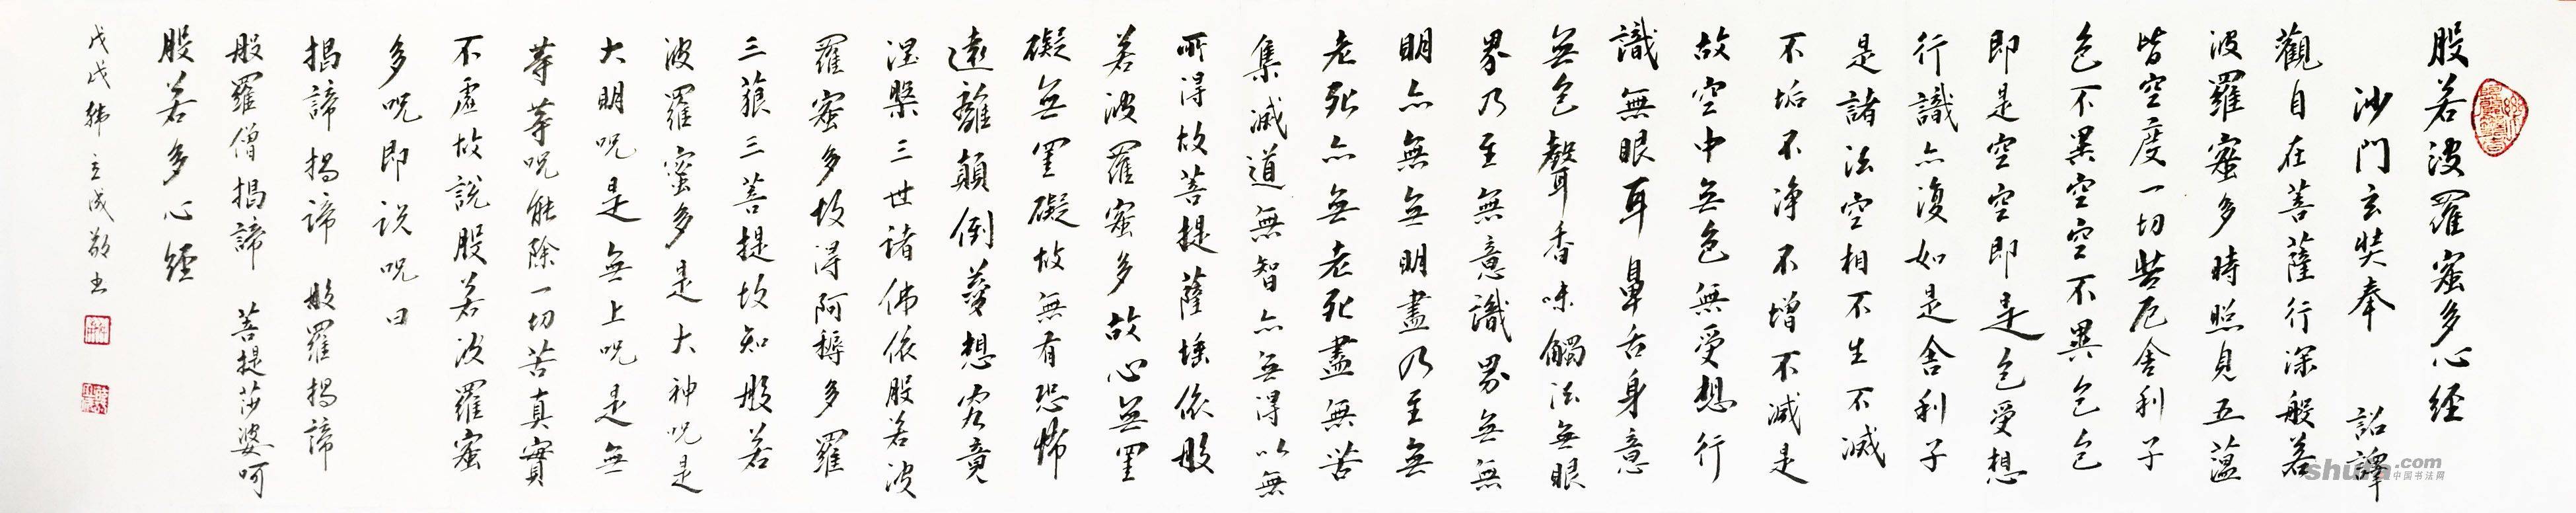 般若波羅蜜多心経
沙門玄奘奉 詔譯
觀自在菩薩行深般若
波羅蜜多時照見五蘊
皆空度一切苦厄舍利子
色不異空空不異色色
即是空空即是色受想
行識亦復如是舍利子
是諸法空相不生不滅
不垢不净不增不減是
故空中无色無受想行
識無眼耳鼻舌身意
无色聲香味觸法无眼
界乃至無意識界无無
明亦無无明盡乃至无
老死亦无老死盡無苦
集滅道無智亦无得以無
所得故菩提薩埵依般
若波羅蜜多故心无罣
礙无罣礙故無有恐怖
遠離顛倒夢想究竟
涅槃三世诸佛依般若波
羅蜜多故得阿耨多羅
三藐三菩提故知般若
波羅蜜多是大神呪是
大明呪是無上呪是无
等等呪能除一切苦真實
不虛故説般若波羅蜜
多呪即说呪曰
揭諦揭諦 般羅揭諦
般羅僧揭諦 菩提莎婆呵
般若多心経
戊戌韩立成敬书
shufa.com
中国书法网